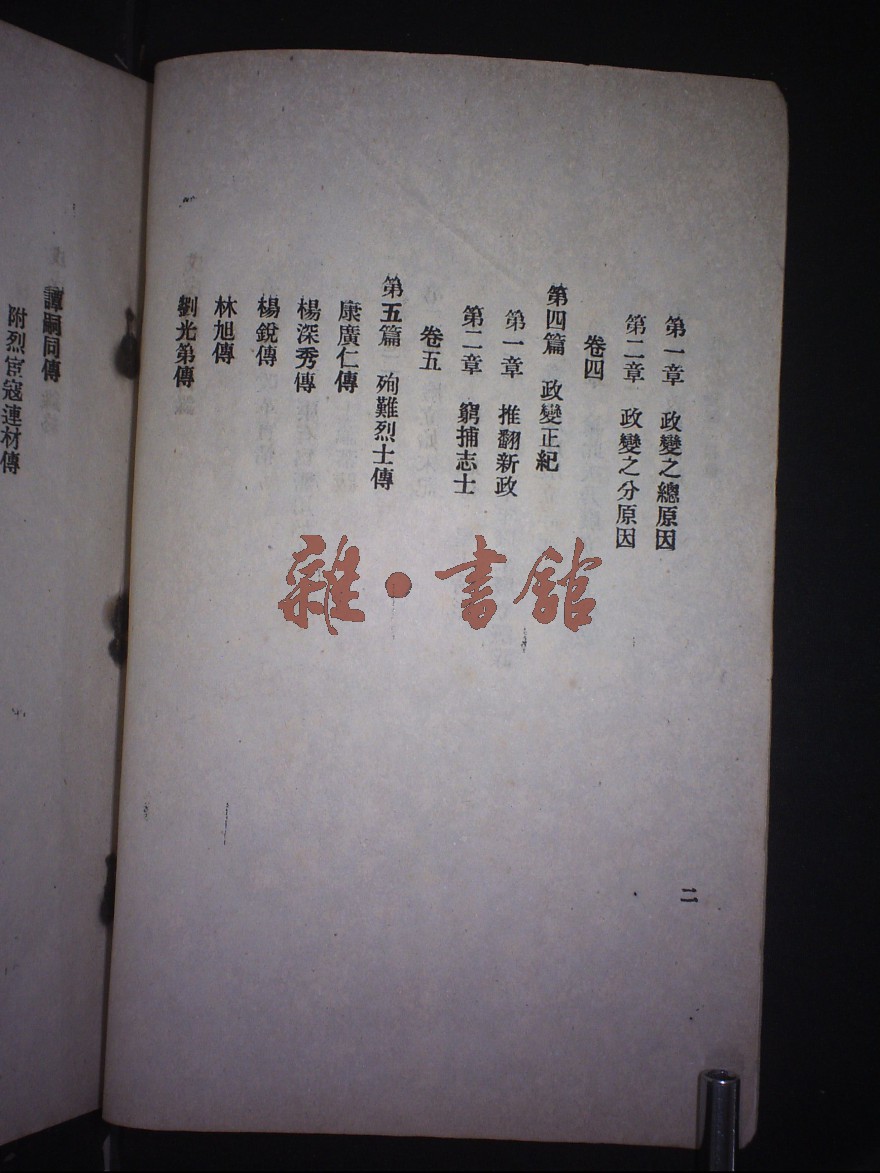 第一章 政變之總原因
第二章 政變之分原因
卷四
第四篇 政變正紀
第一章 推翻新政
第二章 窮捕志士
卷五
第五篇 殉難烈士傳
康廣仁傳
楊深秀傳
楊銳傳
林旭傳
劉光第傳
二
譚嗣同傳
附烈宦寇連材傳
雜·書館